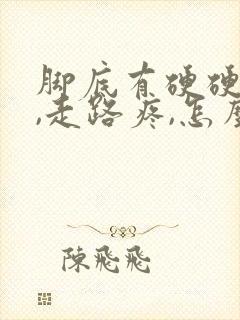 脚底有硬硬
,走路疼,怎
陳飛飛